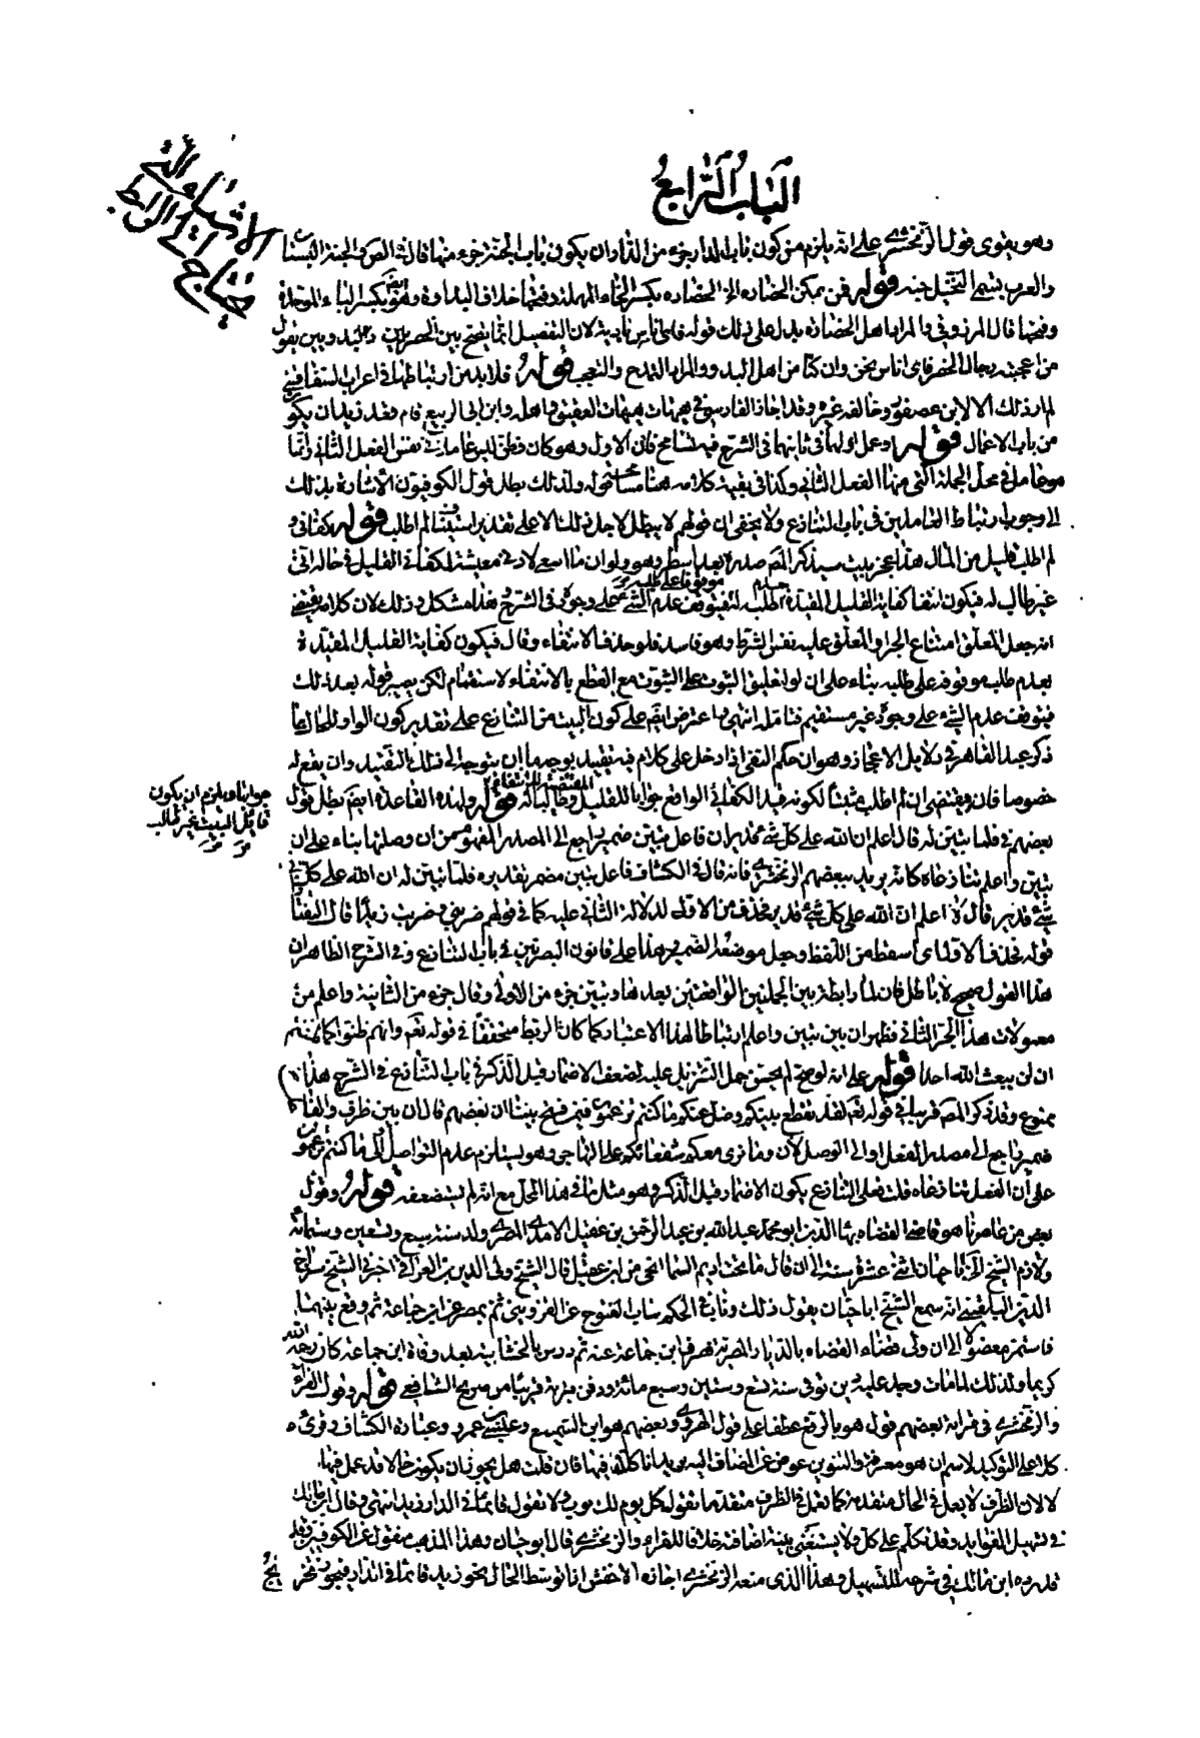 الباب الرابع
الاشياء التي
تحتاج الى الرابط
وهو يقوى قول الزمخشري على انه يلزم من كون باب الدار جزء من الدار ان يكون باب الجنة جزء منها قال في الصحاح الجنة البستان
والعرب يسمى النخيل جنة قوله فمن يمكن الحضارة الخ الحضارة بكسر الحاء المهملة وفتحها خلاف البداوة وهو ايضا بكسر الباء الموحدة
وفتحها قال المرزوقي والمراد اهل الحضارة يدل على ذلك قوله فاي اناس بادية لان التفصيل انما يصح بين الحضريين وبين يقول
من اعجبته رجال الحضر فاي اناس نحن وان كنا من اهل البدو والمراد التمدح والتعجب قوله فلا بد من ارتباطهما في اعراب السفاقسي
لم ار ذلك الا لابن عصفور وخالفه غيره وقد اجاز الفارسي في هيهات هيهات العقيق واهله وابن ابي الربيع قام وقعد زيد ان يكون
من باب الاعمال قوله او عمل اولهما في ثانيهما في الشرح فيه تسامح فان الاول وهو كان وظن ليس عاملا في نفس الفعل الثاني وانما
هو عامل في محل الجملة التي منها الفعل الثاني وكذا في بقية كلامه هنا قوله ولذلك بطل قول الكوفيون الاشارة بذلك
الى وجوب ارتباط العاملين في باب التنازع ولا يخفى ان قولهم لا يبطل لاجل ذلك الا على تقدير استيناف لم اطلب قوله كفاني و
لم اطلب قليل من المال هذا عجز بيت سيذكر المص صدره بعد اسطر وهو ولو ان ما اسعى لادنى معيشة لكفاني القليل في حالة اني
غير طالب له فيكون انتفا كفاية القليل المقيدة بعدم طلبه موقوفا على طلبه فيتوقف عدم الشيء على وجوده في الشرح هذا مشكل وذلك لان كلامه يقتضي
انه جعل المعلق امتناع الجزاء والمعلق عليه نفس الشرط وهو فاسد فلو حذف الانتفاء وقال فيكون كفاية القليل المقيدة
بعدم طلبه موقوفة على طلبه بناء على ان لو لتعليق الثبوت على الثبوت مع القطع بالانتفاء لاستقام لكن يصير قوله بعد ذلك
فيتوقف عدم الشيء على وجوده غير مستقيم فتامله انتهى واعترض ايضا على كون البيت من التنازع على تقدير كون الواو للحال بما
ذكر عبد القاهر في دلائل الاعجاز وهو ان حكم النفي اذا دخل على كلام فيه تقييد بوجه ما ان يتوجه الى ذلك التقييد وان يقع له
خصوصا فان ويقتضي ان لم اطلب مثبتا لكونه قيد الكفاني الواقع جوابا للو المقتضية للانتفاء قوله ولهذه القاعدة ايضا بطل قول
بعضهم في فلما تبين له قال اعلم ان الله على كل شيء قدير ان فاعل تبين ضمير راجع الى المصدر المفهوم من ان وصلتها بناء على ان
تبين واعلم تنازعاه كانه يريد ببعضهم الزمخشري فانه قال في الكشاف فاعل تبين مضمر تقديره فلما تبين له ان الله على كل
شيء قدير قال اعلم ان الله على كل شيء قدير فحذف من الاول لدلالة الثاني عليه كما في قولهم ضربني وضربت زيدا قال التفتا
قوله فحذف الاول اي اسقط من اللفظ وجعل موضعه الضمير هذا على قانون البصريين في باب التنازع وفي الشرح الظاهر ان
هذا القول صحيح لا باطل فان لما رابطة بين الجملتين الواقعتين بعدها وتبين جزء من الاولى وقال جزء من الثانية واعلم من
معمولات هذا الجزء الثاني فظهر ان بين تبين واعلم ارتباطا بهذا الاعتبار كما كان الربط متحققا في قوله تعالى وانهم ظنوا كما ظننتم
ان لن يبعث الله احدا قوله على انه لو صح لم يحسن حمل التنزيل عليه لضعف الاضمار قبل الذكر في باب التنازع في الشرح هذا
ممنوع وقد ذكر المص قريبا في قوله تعالى لقد تقطع بينكم وضل عنكم ما كنتم تزعمون فيمن فتح بيننا ان بعضهم قال ان بين ظرف والفاعل
ضمير راجع الى مصدر الفعل او الى الوصل لان وما نرى معكم شفعاءكم على التهاجر وهو يستلزم عدم التواصل او الى ما كنتم تزعمون
على ان الفعل تنازعاه قلت فعلى التنازع يكون الاضمار قبل الذكر وهو مثل ما في هذا المحل مع انه لم يستضعفه قوله وقول
بعض من عاصرنا هو قاضي القضاة بهاء الدين ابو محمد عبد الله بن عبد الرحمن بن عقيل الآمدي المصري ولد سنة سبع وتسعين وستمائة
ولازم الشيخ ابا حيان اثني عشرة سنة الى ان قال ما تحت اديم السماء انحى من ابن عقيل قال الشيخ ولي الدين بن العراقي اخبرني الشيخ سراج
الدين البلقيني انه سمع الشيخ ابا حيان يقول ذلك وناب في الحكم بباب الفتوح عن القزويني ثم بمصر عن ابن جماعة ثم وقع بينهما
فاستمر معضولا الى ان ولى قضاء القضاه بالديار المصرية فصرف ابن جماعة عنه ثم درس بالخشابية بعد وفاة ابن جماعة كان رحمه الله
كريما ولذلك لما مات وجد عليه دين توفى سنة تسع وستين وسبع مائة ودفن في تربة قريبا من ضريح الشافعي قوله وقول الفراء
والزمخشري في قراءة بعضهم قول هو بالرفع عطفا على قول المهدي وبعضهم هو ابن السميفع وعيسى بن عمرو وعبارة الكشاف وقرئ
كلا على التوكيد لاسم ان هو معرفة والتنوين عوض عن المضاف اليه يريد انا كلنا فيها فان قلت هل يجوز ان يكون حالا قد عمل فيها
لا لان الظرف لا يعمل في الحال متقدمة كما يعمل في الظرف متقدما تقول كل يوم لك ثوب ولا تقول قائما في الدار زيد انتهى وقال ابن مالك
في تسهيل الفوائد وقد تكلم على كل ولا يستغنى بنية اضافته خلافا للفراء والزمخشري قال ابو حيان وهذا المذهب منقول عن الكوفيين وقد
قدره ابن مالك في شرحه للتسهيل وهذا الذي منعه الزمخشري اجازه الاخفش اذا توسط الحال نحو زيد قائما في الدار فيجوز تخر
جوابا ويلزم ان يكون
قائل البيت غير طالب